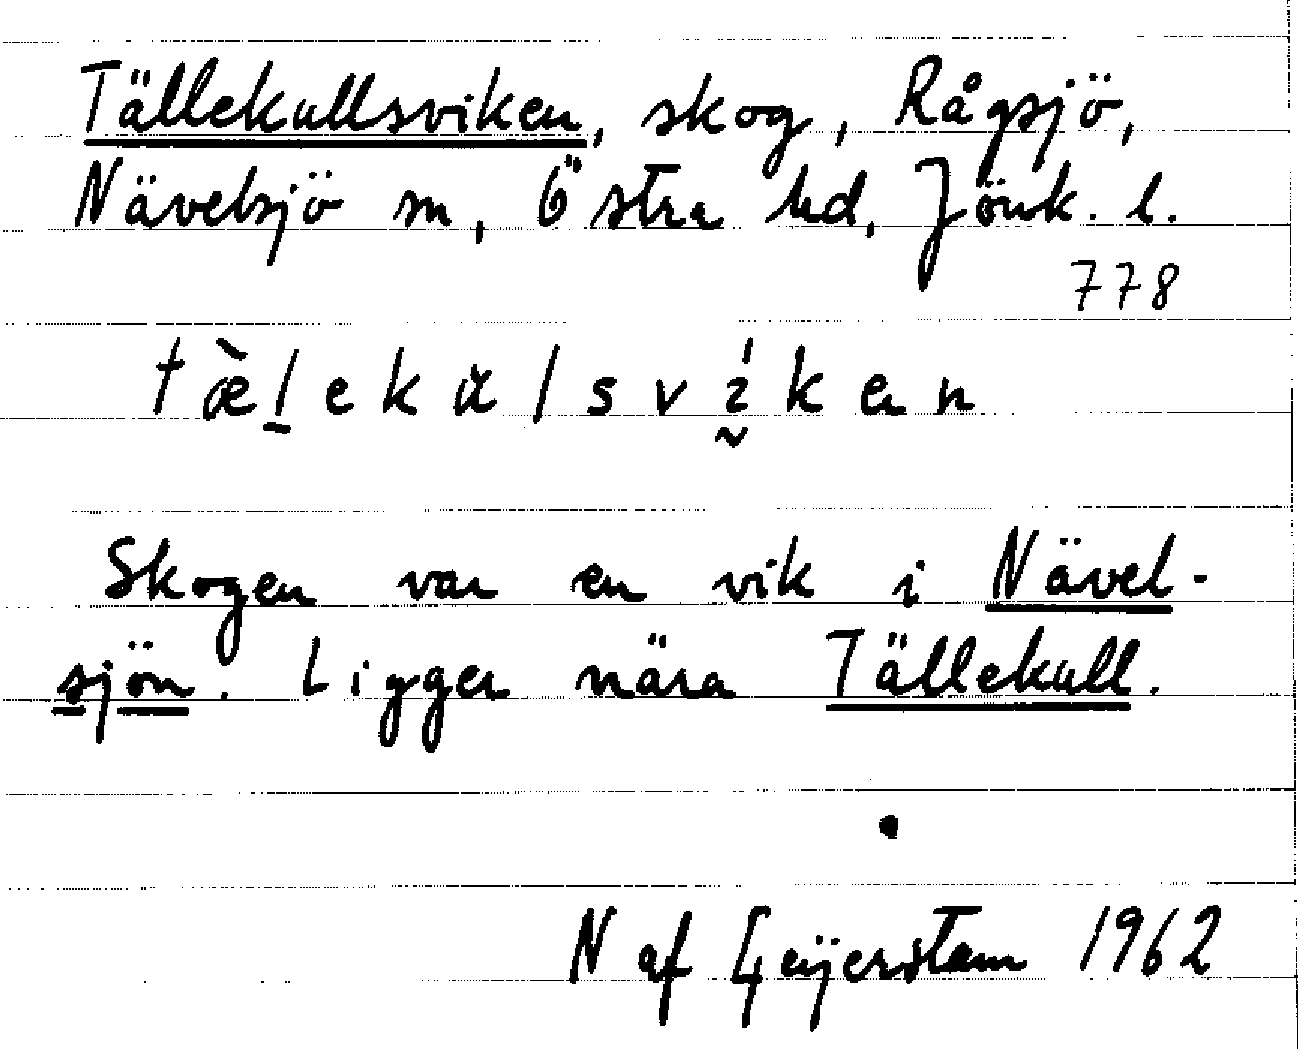 Tällekullsviken, skog, Rågsjö,
Nävelsjö sn, Östra hd, Jönk. l.
778
tæ̀l̠ekŭlsvı̰́ken
Skogen var en vik i Nävel-
sjön. Ligger nära Tällekull.
N af Geijerstam 1962